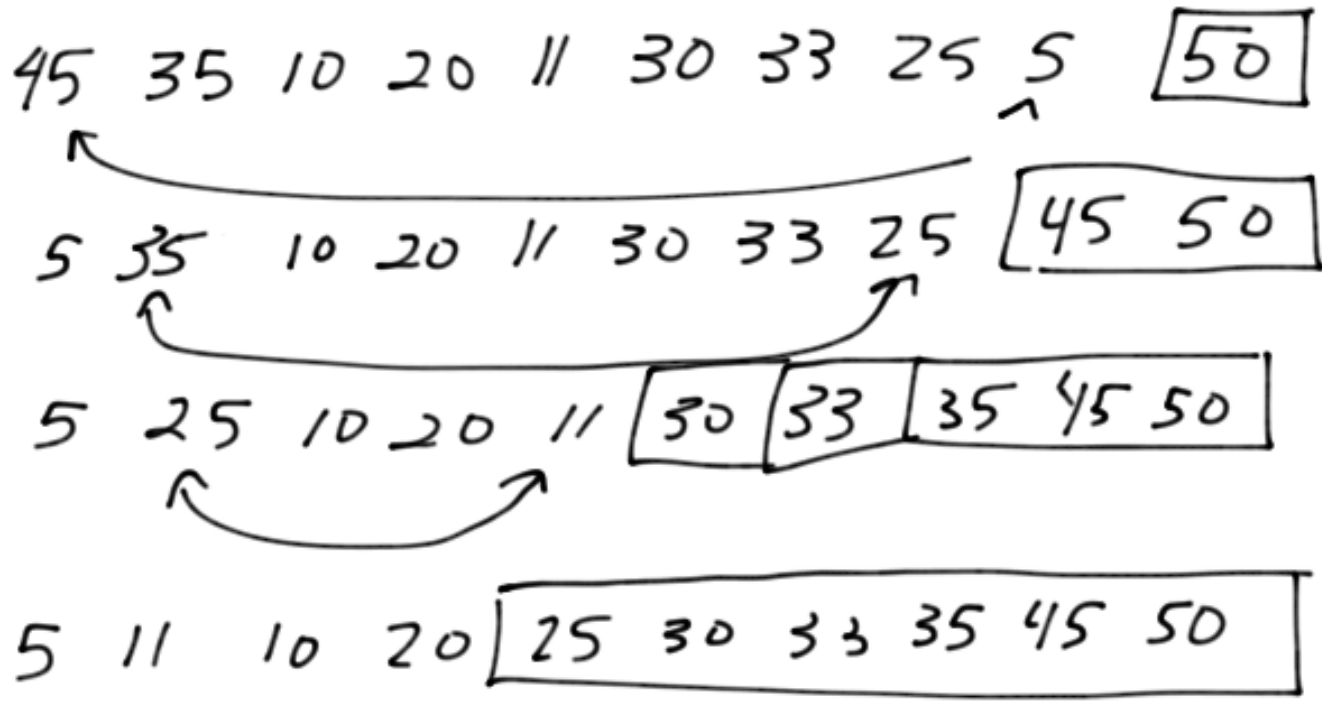 45 35 10 20 11 30 33 25 5 50
5 35 10 20 11 30 33 25 45 50
5 25 10 20 11 30 33 35 45 50
5 11 10 20 25 30 33 35 45 50